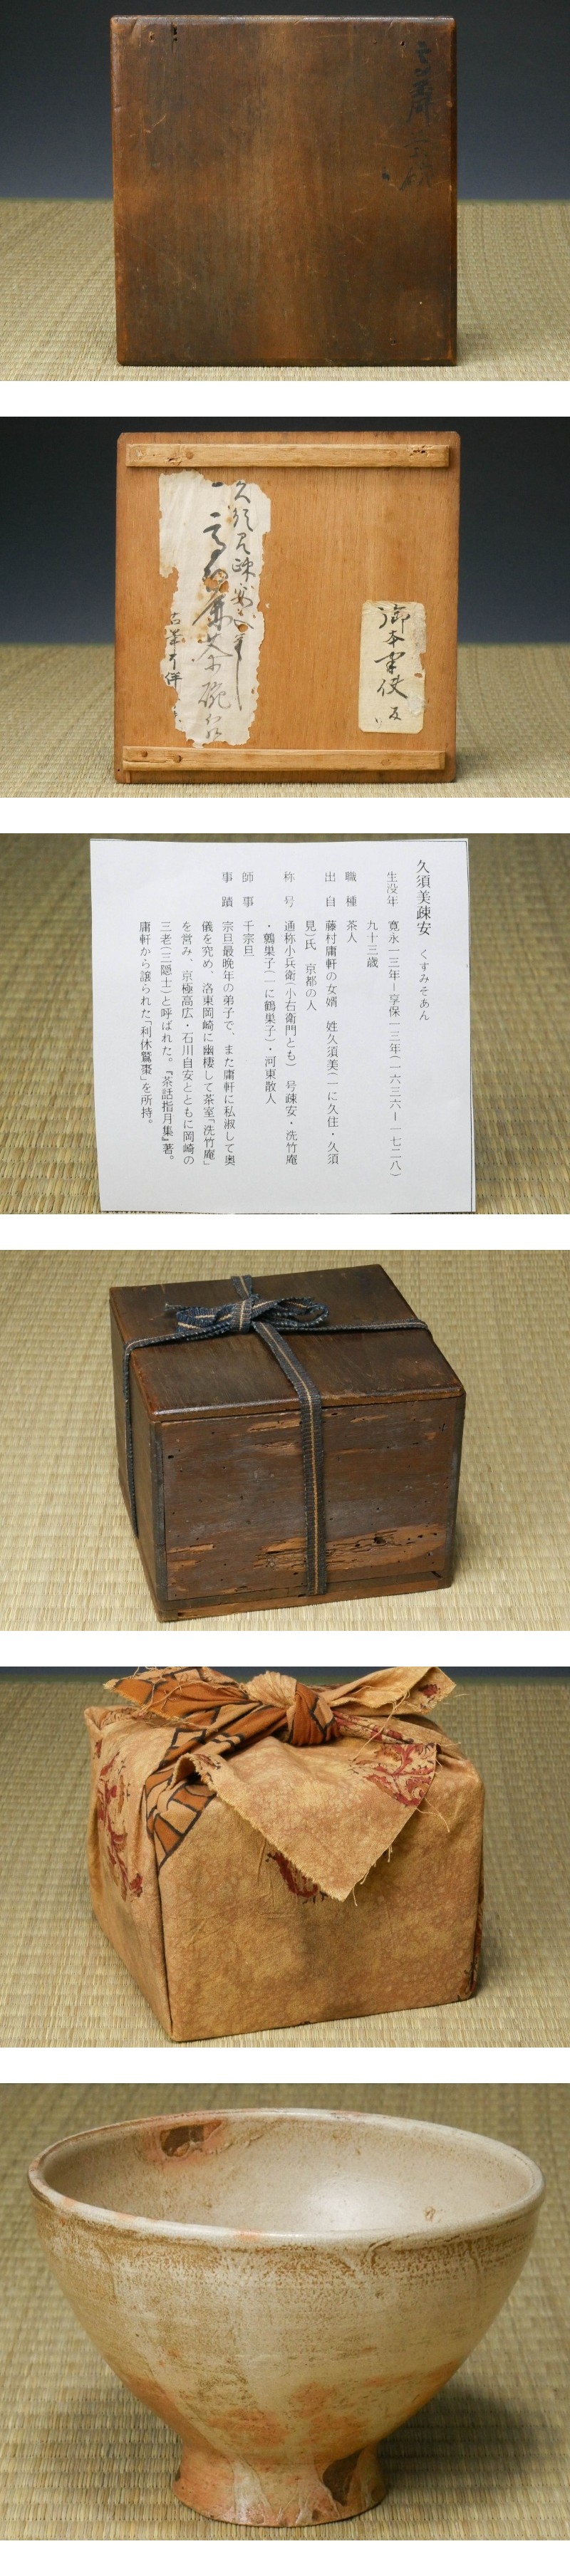 久須見疎安
高麗茶碗
御本
久須美疎安　くすみそあん
生没年　寛永一三年－享保一三年(一六三六－一七二八)
九十三歳
職　種　茶人
出　自　藤村庸軒の女婿　姓久須美(一に久住・久須
見)氏　京都の人
称　号　通称小兵衛(小右衛門とも)　号疎安・洗竹庵
・鷦巣子(一に鶴巣子)・河東散人
師　事　千宗旦
事　蹟　宗旦最晩年の弟子で、また庸軒に私淑して奥
儀を究め、洛東岡崎に幽棲して茶室「洗竹庵」
を営み、京極高広・石川自安とともに岡崎の
三老(三隠士)と呼ばれた。『茶話指月集』著。
庸軒から譲られた「利休鷲棗」を所持。